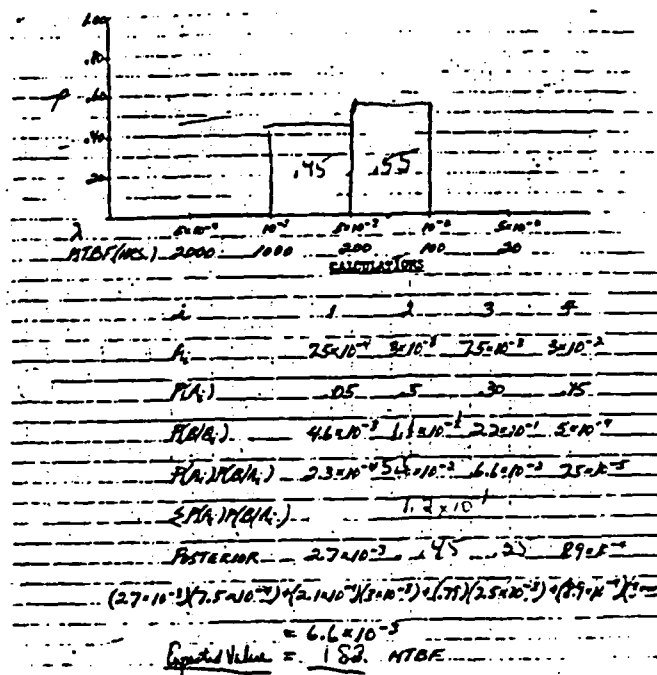 1.00
.80
P .60
.40
.20
.45 .55
λ 5×10⁻⁴ 10⁻³ 5×10⁻³ 10⁻² 5×10⁻²
MTBF (HRS.) 2000 1000 200 100 20
CALCULATIONS
i 1 2 3 4
λᵢ 7.5×10⁻⁴ 3×10⁻³ 7.5×10⁻³ 3×10⁻²
P(Aᵢ) .05 .5 .30 .15
P(B/Aᵢ) 4.6×10⁻³ 2.2×10⁻¹ 5×10⁻⁴
P(Aᵢ)P(B/Aᵢ) 2.3×10⁻⁴ 6.6×10⁻² 7.5×10⁻⁵
ΣP(Aᵢ)P(B/Aᵢ) 1.2×10⁻¹
POSTERIOR 2.7×10⁻³ .45 8.9×10⁻⁴
(2.7×10⁻³)(7.5×10⁻⁴)+(2.1×10⁻¹)(3×10⁻³)+(.79)(7.5×10⁻³)+(8.9×10⁻⁴)
= 6.6×10⁻³
Expected Value = 182. MTBF